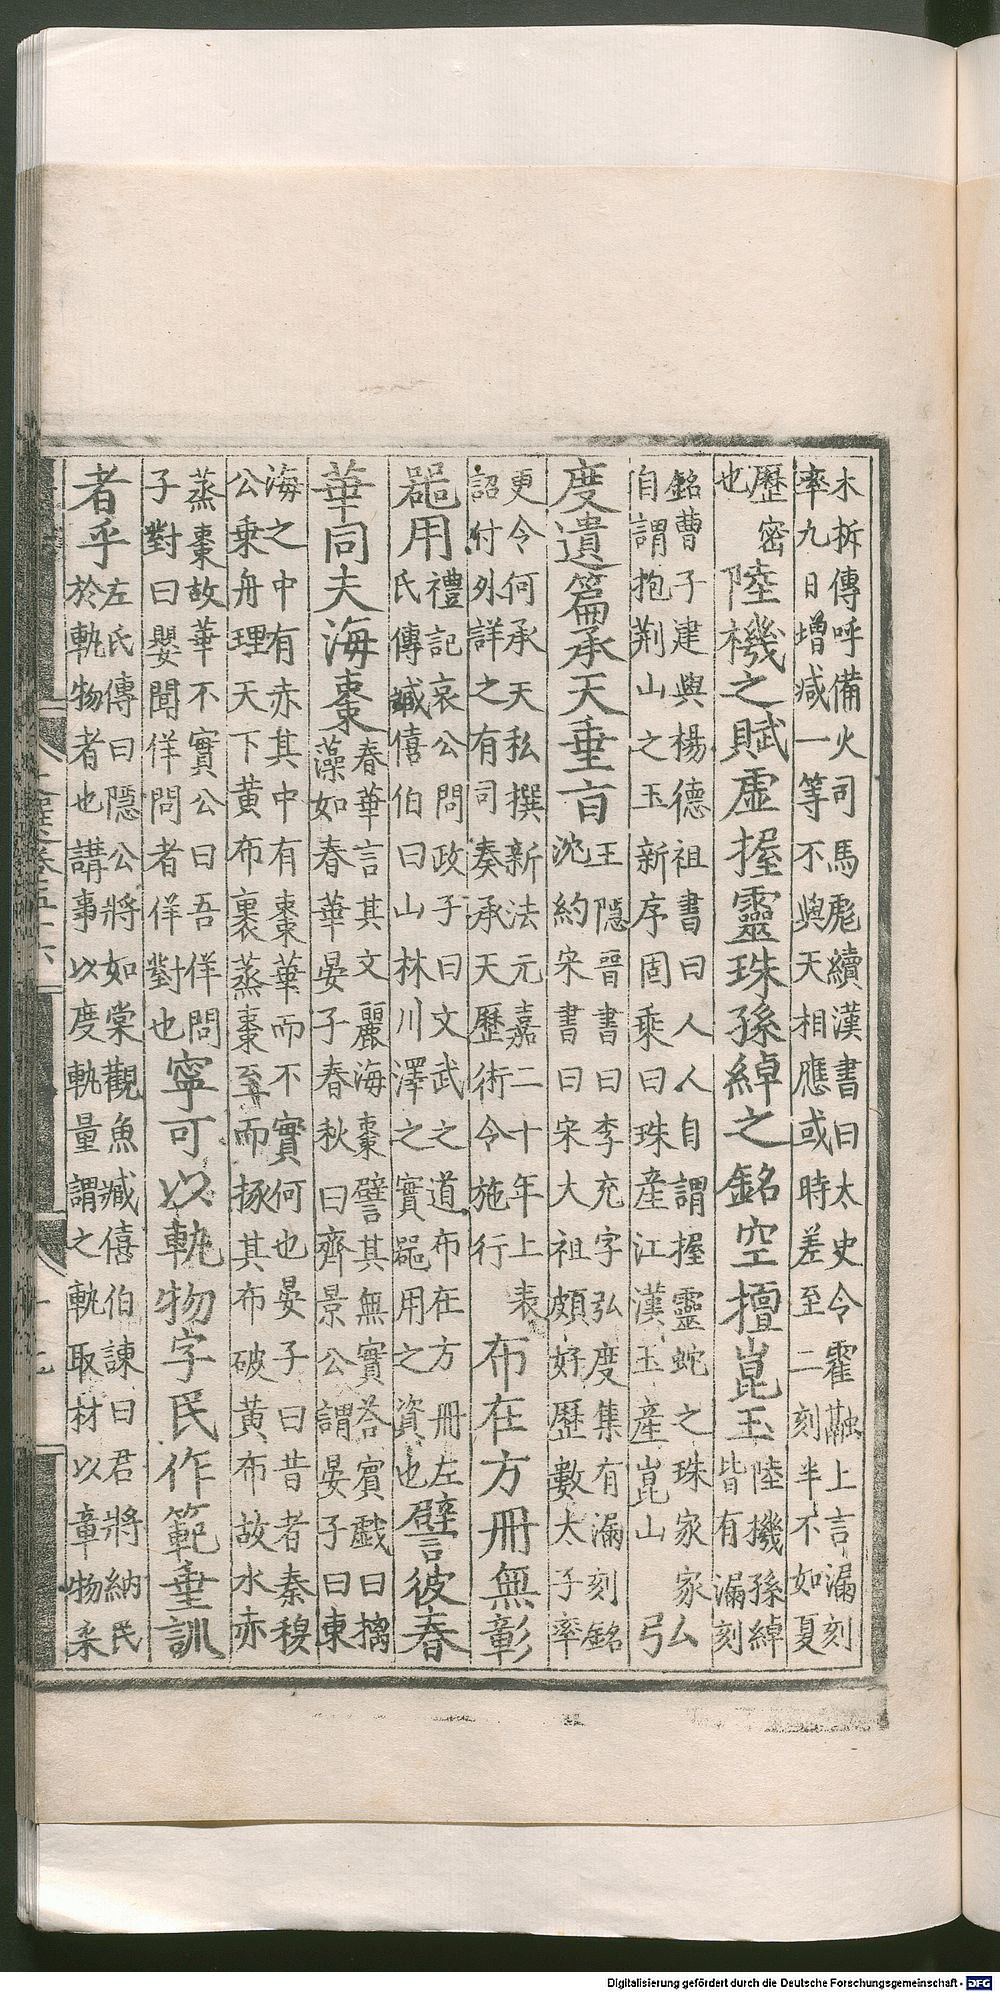 木拆傳呼備火司馬彪續漢書曰太史令霍融上言漏刻
率九日增减一等不與天相應或時差至二刻半不如夏
歷密
也
陸機之賦虛握靈珠孫綽之銘空擅崑玉
陸機孫綽
皆有漏刻
銘曹子建與楊德祖書曰人人自謂握靈蛇之珠家家
自謂抱荆山之玉新序固乘曰珠産江漢玉産崑山
弘
度遺篇承天垂旨
王隱晉書曰李充字弘度集有漏刻銘
沈約宋書曰宋太祖頗好歷數太子率
更令何承天私撰新法元嘉二十年上表
詔付外詳之有司奏承天歷術令施行
布在方冊無彰
器用
禮記哀公問政子曰文武之道布在方冊左
氏傳臧僖伯曰山林川澤之實器用之資也
譬彼春
華同夫海棗
春華言其文麗海棗譬其無實荅賓戲曰摛
藻如春華晏子春秋曰齊景公謂晏子曰東
海之中有赤其中有棗華而不實何也晏子曰昔者秦穆
公乗舟理天下黄布裹蒸棗至而捄其布破黄布故水赤
蒸棗故華不實公曰吾佯問
子對曰嬰聞佯問者佯對也
寧可以軌物字民作範垂訓
者乎
左氏傳曰隱公將如棠觀魚臧僖伯諫曰君將納民
於軌物者也講事以度軌量謂之軌取材以章物采
Digitalisierung gefördert durch die Deutsche Forschungsgemeinschaft - DFG